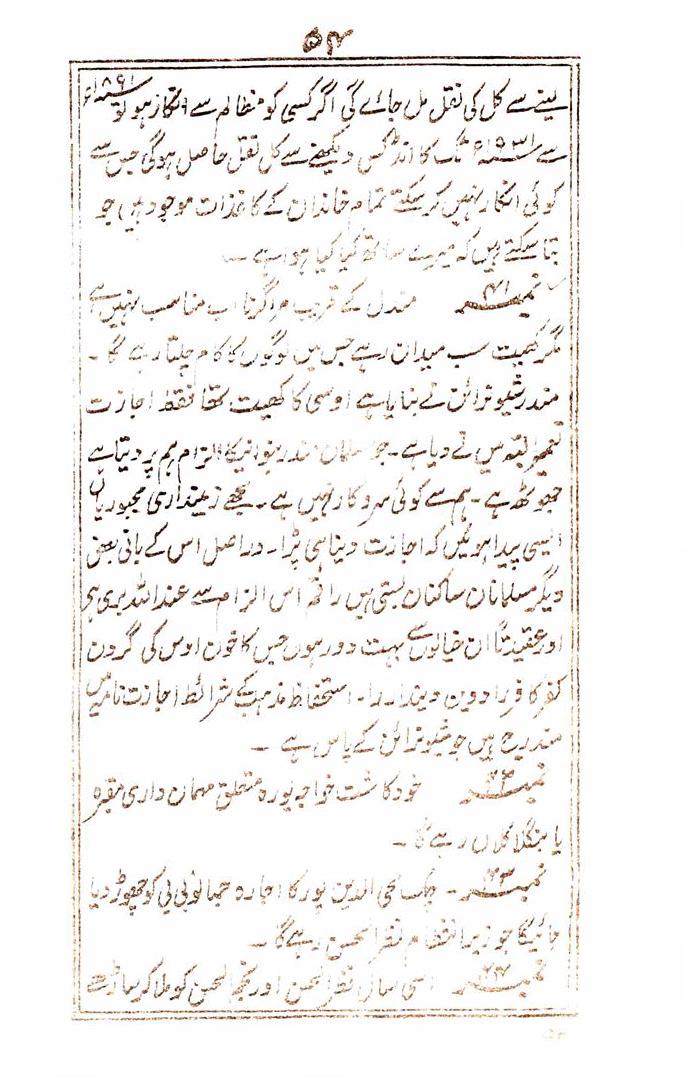 ۵۴
لینے سے کل کی نقل مل جاے گی اگر کسی کو مظالم سے انکار ہو تو ۱۸۹۱ء
سے ۱۹۳۱ء تک کا انڈکس دیکھنے سے کل نقل حاصل ہوگی جس سے
کوئی انکار نہیں کر سکتے تمام خاندان کے کاغذات موجود ہیں جو
بتا سکتے ہیں کہ میرے ساتھ کیا کیا ہوا ہے ۔
نمبر ۲۱ مندل کے قریب اب مناسب نہیں ہے
مگر کھیت سب میدان رہے جس میں لوگوں کا کام چلتا رہے گا ۔
مندر شیو نرائن نے بنایا ہے اوسی کا کھیت تھا فقط اجازت
تعمیر البتہ میں نے دیا ہے ۔ جو مسلمان مندر بنوانیکا الزام ہم پر دیتا ہے
جھوٹھ ہے ۔ ہم سے کوئی سروکار نہیں ہے ۔ مجھے زمینداری مجبوریاں
ایسی پیدا ہوئیں کہ اجازت دینا ہی پڑا ۔ دراصل اس کے بانی بعض
دیگر مسلمانان ساکنان بستی ہیں راقم اس الزام سے عند اللہ بری ہی
اور عقیدتاً ان خیالوں سے بہت دور ہوں جس کا خون اوس کی گردن
کفر کافر را و دین دیندار را ۔ استحفاظ مذہب کے شرائط اجازت نامہ میں
مندرج ہیں جو شیو نرائن کے پاس ہے ۔
نمبر ۲۲ خود کاشت خواجہ پورہ متعلق مہمان داری مقبرہ
یا بنگلا کلاں رہے گا ۔
نمبر ۲۳ ۔ چک محی الدین پور کا اجارہ جمالو بی بی کو چھوڑ دیا
جائیگا جو زیر انتظام نظر الحسن رہے گا ۔
نمبر ۲۴ اسی سال نظر الحسن اور نجم الحسن کو ملا کر ساڑھے